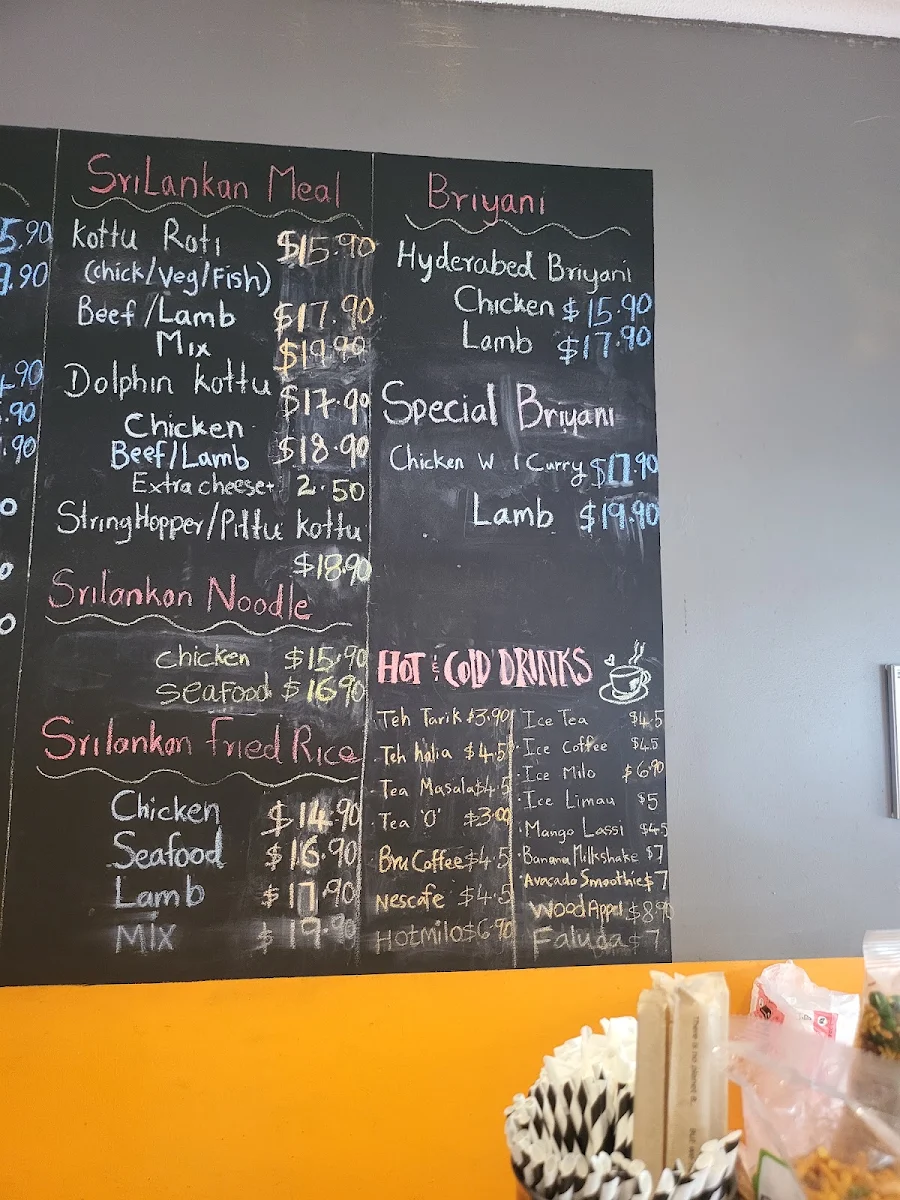 5.90
9.90
.90
.90
.90
SriLankan Meal
Kottu Roti $15.90
(chick/Veg/Fish)
Beef/Lamb $17.90
Mix $19.90
Dolphin kottu $17.90
Chicken
Beef/Lamb $18.90
Extra cheese+ 2.50
StringHopper/Pittu kottu
$18.90
Srilankan Noodle
chicken $15.90
seafood $16.90
Srilankan Fried Rice
Chicken $14.90
Seafood $16.90
Lamb $17.90
Mix $19.90
Briyani
Hyderabed Briyani
Chicken $15.90
Lamb $17.90
Special Briyani
Chicken W Curry $17.90
Lamb $19.90
HOT & COLD DRINKS
Teh Tarik $3.90
Teh halia $4.5
Tea Masala $4.5
Tea 'O' $3.00
Bru Coffee $4.5
Nescafe $4.5
Hotmilo $6.90
Ice Tea $4.5
Ice Coffee $4.5
Ice Milo $6.90
Ice Limau $5
Mango Lassi $4.5
Banana Milkshake $7
Avacado Smoothie $7
Wood Appel $8.90
Faluda $7